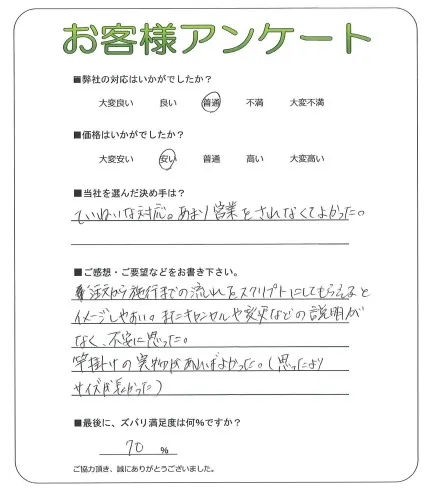 お客様アンケート
■弊社の対応はいかがでしたか？
大変良い 良い 普通 不満 大変不満
■価格はいかがでしたか？
大変安い 安い 普通 高い 大変高い
■当社を選んだ決め手は？
ていねいな対応。あまり営業をされなくてよかった。
■ご感想・ご要望などをお書き下さい。
注文から施行までの流れをスクリプトにしてもらえると
イメージしやすい。またキャンセルや変更などの説明が
なく、不安に思った。
竿掛けの実物があればよかった。(思ったより
サイズが長かった)
■最後に、ズバリ満足度は何%ですか？
70 %
ご協力頂き、誠にありがとうございました。